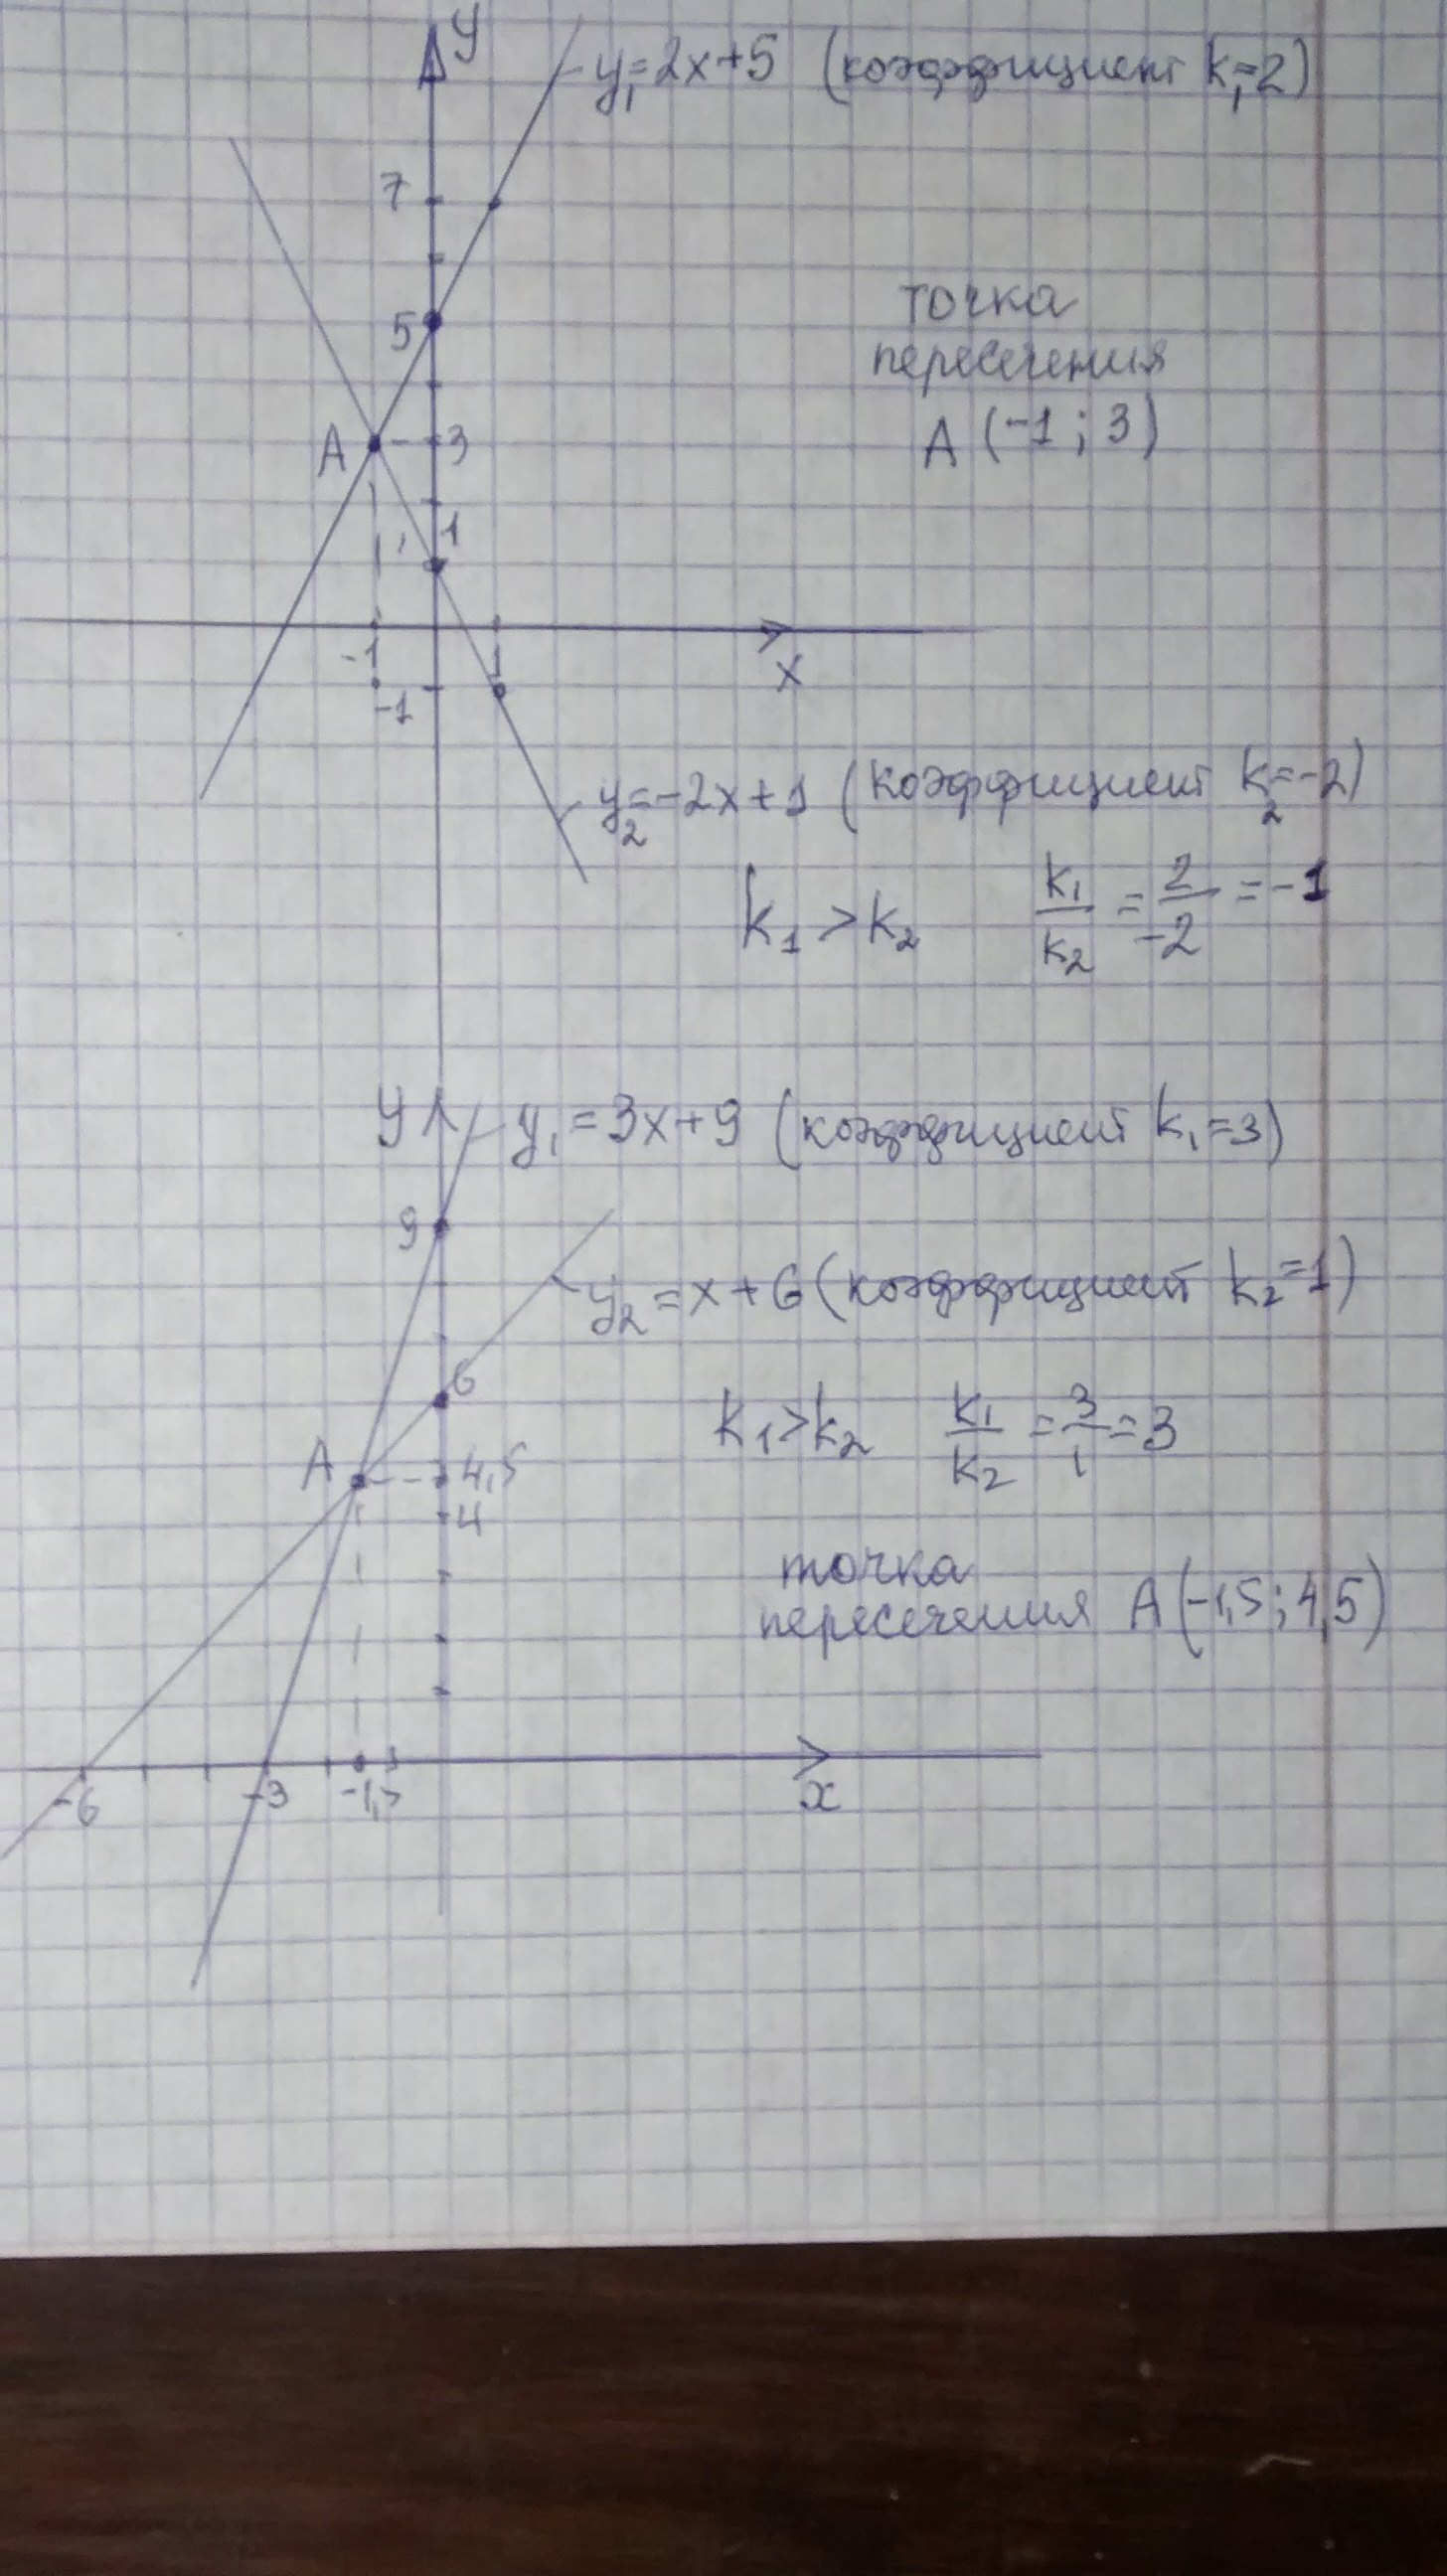 y
y₁=2x+5 (коэффициент k₁=2)
7
5
точка
пересечения
A (-1; 3)
A
3
1
-1
1
x
-1
y₂=-2x+1 (коэффициент k₂=-2)
k₁ > k₂ k₁/k₂ = 2/-2 = -1
y
y₁ = 3x+9 (коэффициент k₁=3)
9
y₂ = x+6 (коэффициент k₂=1)
6
k₁>k₂ k₁/k₂ = 3/1 = 3
A
4,5
4
точка
пересечения A (-1,5; 4,5)
-6
-3
-1,5
x